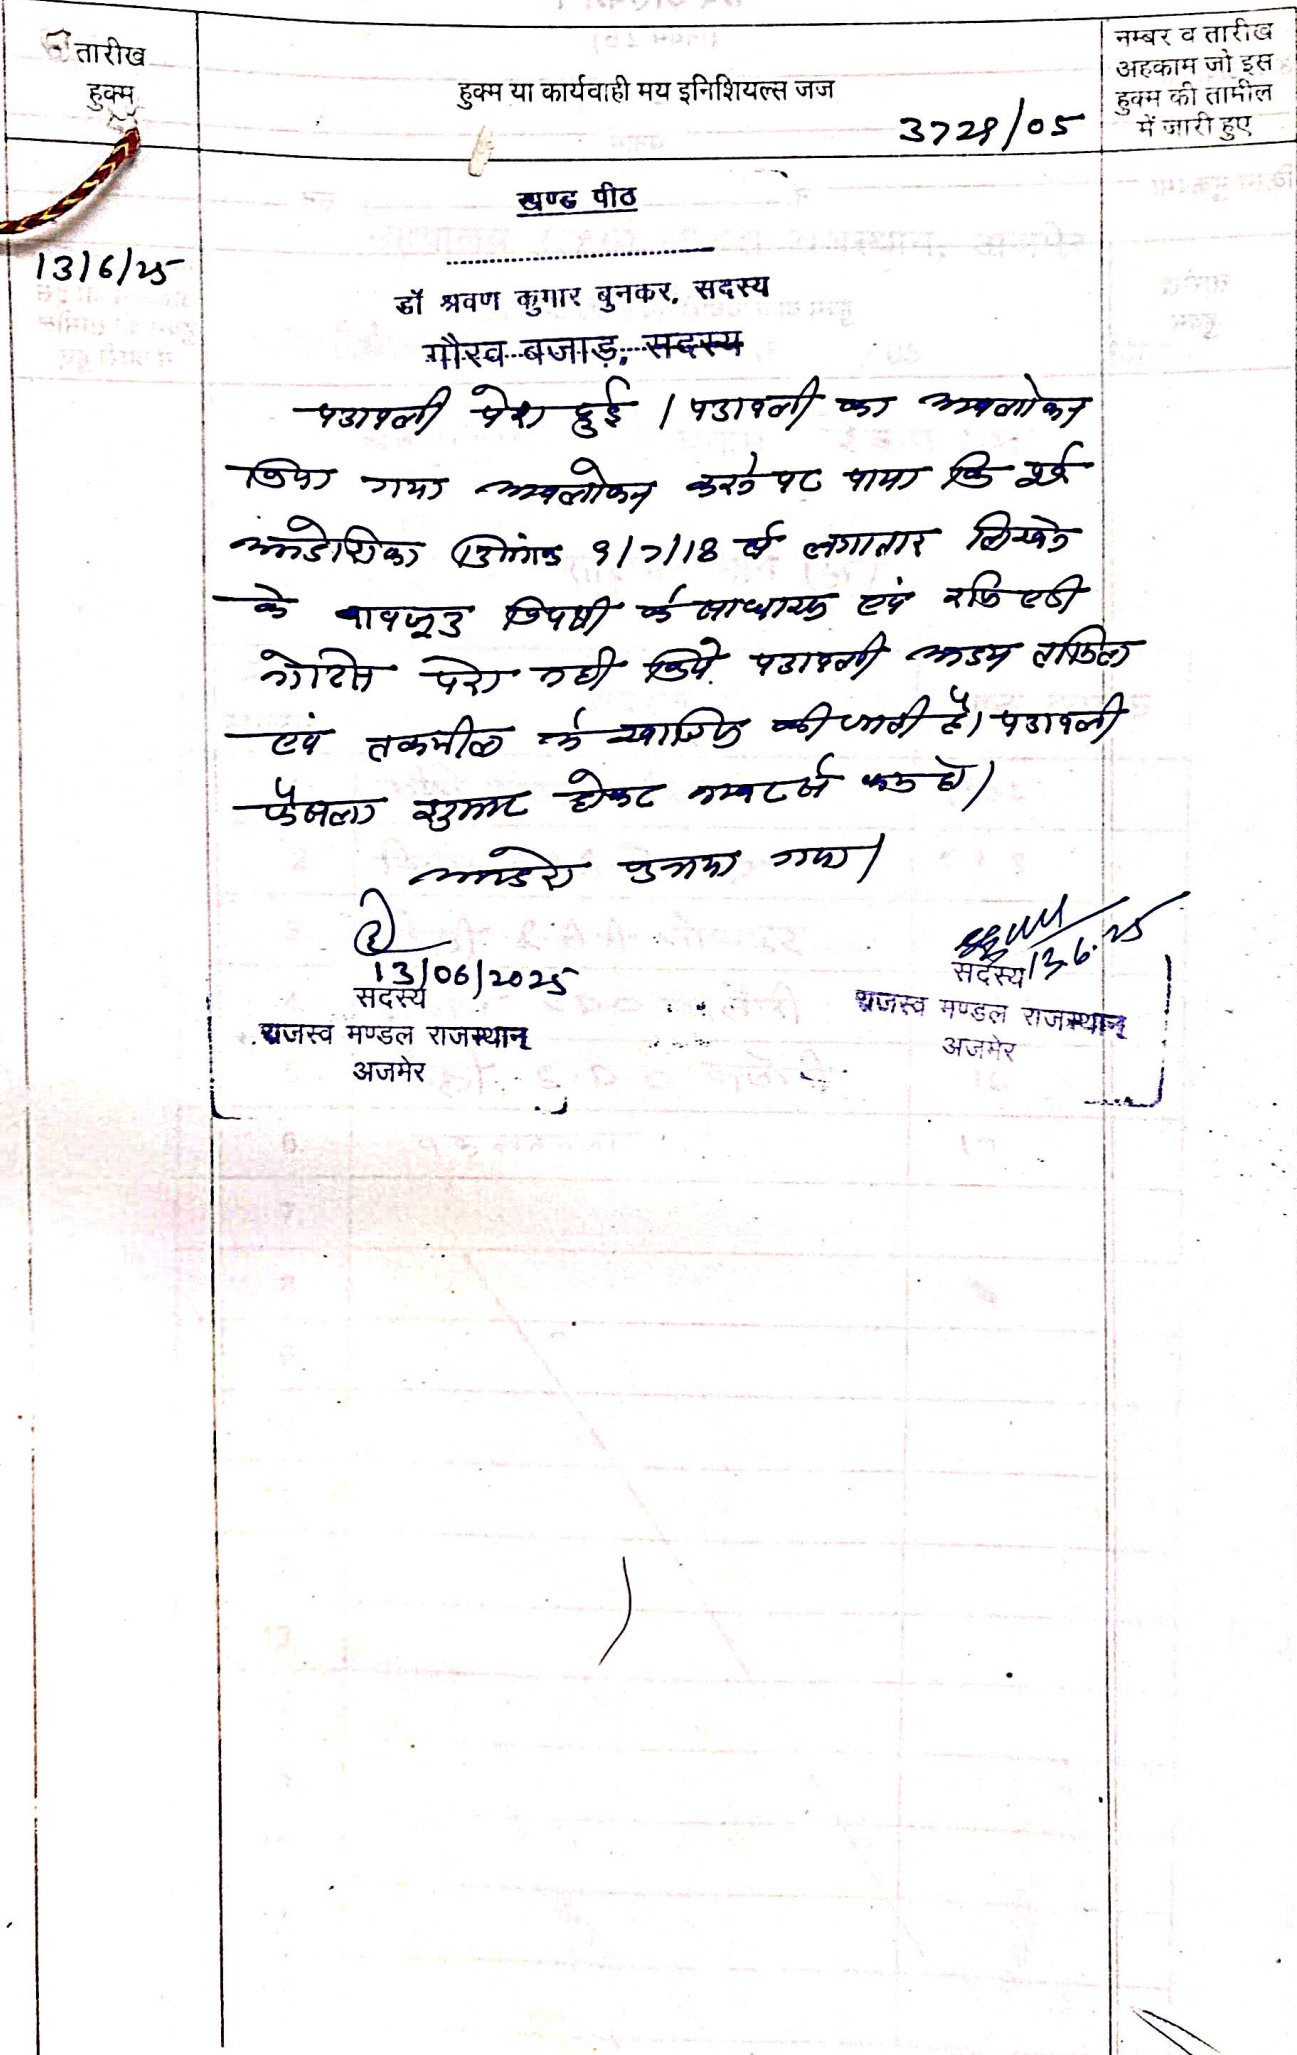 तारीख
हुक्म
हुक्म या कार्यवाही मय इनिशियल्स जज
नम्बर व तारीख
अहकाम जो इस
हुक्म की तामील
में जारी हुए
3729/05
खण्ड पीठ
13/6/25
डॉ श्रवण कुमार बुनकर, सदस्य
गौरव बजाड़, सदस्य
पत्रावली पेश हुई। पत्रावली का अवलोकन
किया गया अवलोकन करने पर पाया कि पूर्व
आदेशिका दिनांक 9/7/18 से लगातार लिखने
के बावजूद विपक्षी के साधारण एवं रजि एडी
नोटिस पेश नही किये पत्रावली अदम
एवं तकमील के खारिज की जाती है। पत्रावली
फैसला शुमार होकर नम्बर से कम हो।
आदेश सुनाया गया।
13/06/2025
सदस्य
राजस्व मण्डल राजस्थान
अजमेर
13.6.25
सदस्य
राजस्व मण्डल राजस्थान
अजमेर